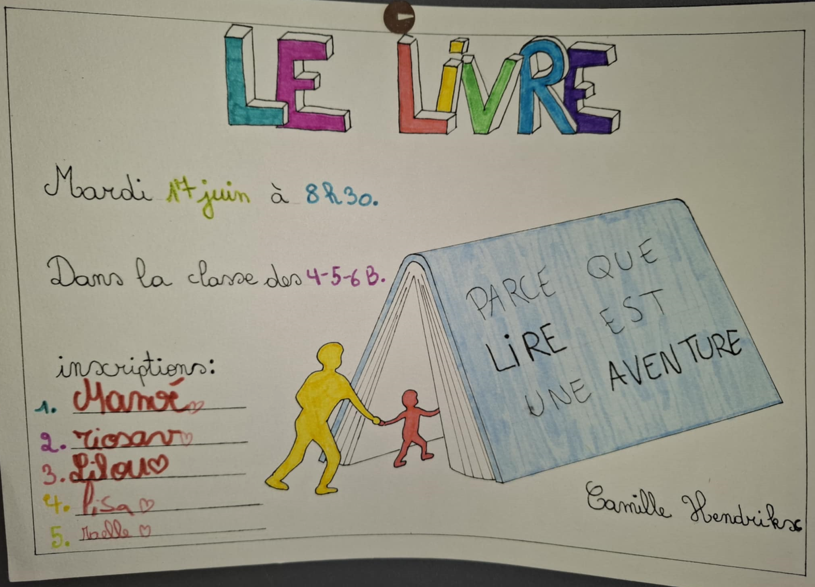 LE LiVRE
Mardi 17 juin à 8h30.
Dans la classe des 4-5-6 B.
PARCE QUE
LiRE EST
UNE AVENTURE
inscriptions:
1. Manoé
2.
3. Lilou
4. lisa
5.
Camille Hendrikx